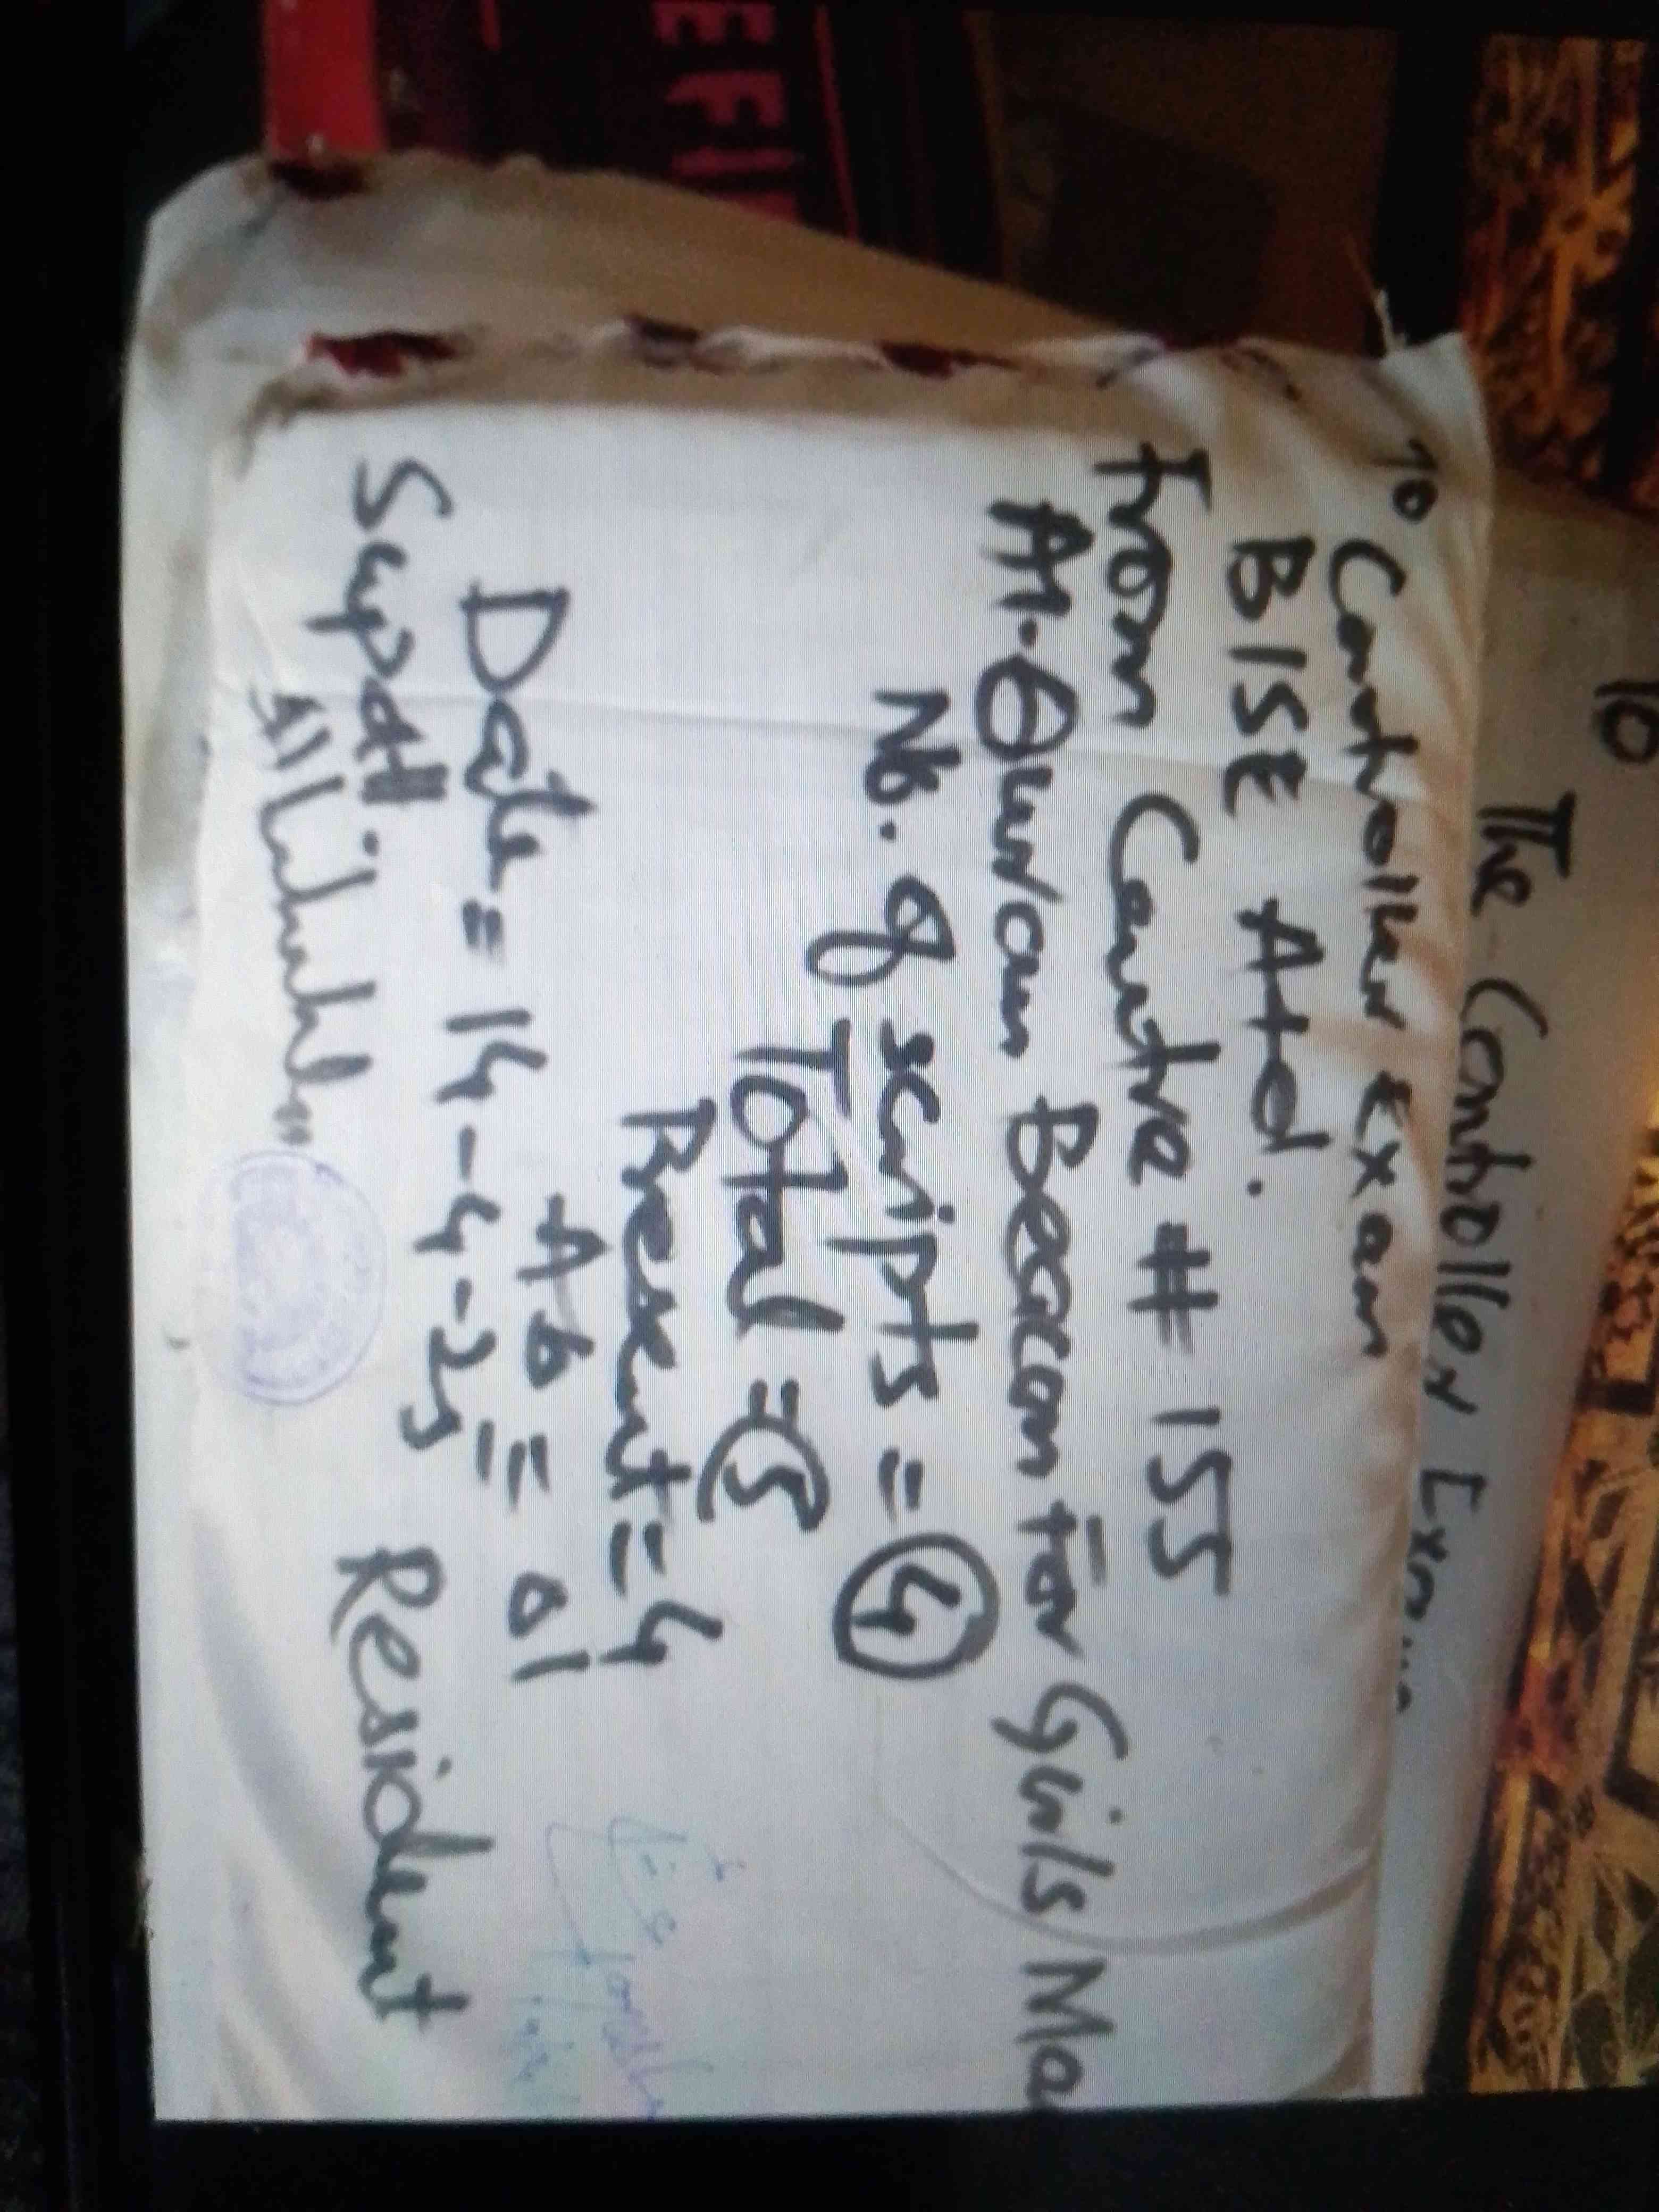 To
The Controller Exam
To Controller Exam
BISE Atd.
From Centre # 155
Al-Quran Beacon For Girls Ma
No. of scripts = 4
Total = 5
Present = 4
Ab = 01
Date = 14-4-25
Supdtt
Resident
EFI